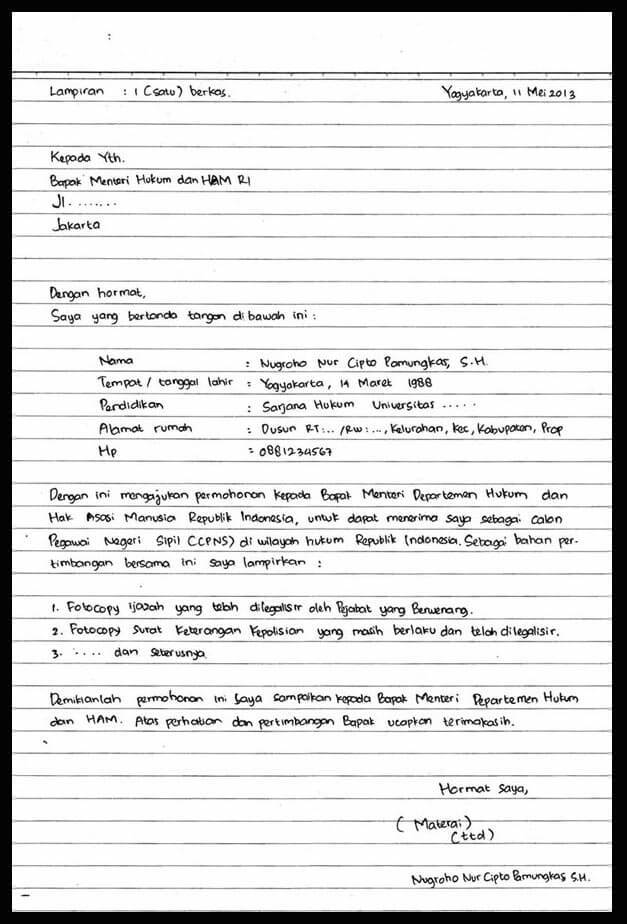 Lampiran : 1 (satu) berkas. Yogyakarta, 11 Mei 2013
Kepada Yth.
Bapak Menteri Hukum dan HAM RI
Jl. .......
Jakarta
Dengan hormat,
Saya yang bertanda tangan dibawah ini :
Nama : Nugroho Nur Cipto Pamungkas, S.H.
Tempat / tanggal lahir : Yogyakarta, 14 Maret 1988
Pendidikan : Sarjana Hukum Universitas .....
Alamat rumah : Dusun RT:.. /RW:..., Kelurahan, Kec, Kabupaten, Prop
Hp : 0881234567
Dengan ini mengajukan permohonan kepada Bapak Menteri Departemen Hukum dan
Hak Asasi Manusia Republik Indonesia, untuk dapat menerima saya sebagai calon
Pegawai Negeri Sipil (CPNS) di wilayah hukum Republik Indonesia. Sebagai bahan per-
timbangan bersama ini saya lampirkan :
1. Fotocopy ijasah yang telah dilegalisir oleh Pejabat yang Berwenang.
2. Fotocopy Surat Keterangan Kepolisian yang masih berlaku dan telah dilegalisir.
3. .... dan seterusnya
Demikianlah permohonan ini saya sampaikan kepada Bapak Menteri Departemen Hukum
dan HAM. Atas perhatian dan pertimbangan Bapak ucapkan terimakasih.
Hormat saya,
(Materai)
(ttd)
Nugroho Nur Cipto Pamungkas S.H.